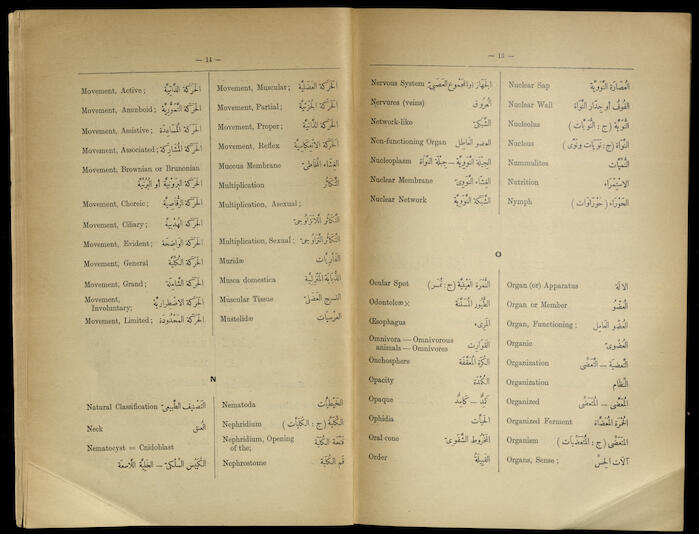 — 14 —
Movement, Active; الحركة الذاتية
Movement, Amœboid; الحركة التموّرية
Movement, Assistive; الحركة المساعدة
Movement, Associated; الحركة المشاركة
Movement, Brownian or Brunonian
الحركة البرونية أو البرنية
Movement, Choreic; الحركة الرقاصية
Movement, Ciliary; الحركة الهدبية
Movement, Evident; الحركة الواضحة
Movement, General الحركة الكلية
Movement, Grand; الحركة الشاملة
Movement,
Involuntary; الحركة الاضطرارية
Movement, Limited; الحركة المحدودة
Movement, Muscular; الحركة العضلية
Movement, Partial; الحركة الجزئية
Movement, Proper; الحركة الذاتية
Movement, Reflex الحركة الانعكاسية
Mucous Membrane الغشاء المخاطي
Multiplication التكاثر
Multiplication, Asexual;
التكاثر اللاتزاوجي
Multiplication, Sexual; التكاثر التزاوجي
Muridæ الفأريات
Musca domestica الذبابة المنزلية
Muscular Tissue النسيج العضلي
Mustelidæ العرسيات
N
Natural Classification التصنيف الطبيعي
Neck العنق
Nematocyst = Cnidoblast
الكيس السلكي — الخلية اللاسعة
Nematoda الخيطيات
Nephridium الكلية (ج: الكليات)
Nephridium, Opening
of the; فتحة الكلية
Nephrostome فم الكلية
— 15 —
Nervous System الجهاز (والمجموع العصبي)
Nervures (veins) العروق
Network-like الشبكي
Non-functioning Organ العضو العاطل
Nucleoplasm الجبلة النووية — جبلة النواة
Nuclear Membrane الغشاء النووي
Nuclear Network الشبكة النووية
Nuclear Sap العصارة النووية
Nuclear Wall الفوف أو جدار النواة
Nucleolus النوية (ج: النويات)
Nucleus النواة (ج: نويات ونوى)
Nummulites النميات
Nutrition الاستمراء
Nymph الحوراء (حوراوات)
O
Ocular Spot النمرة العينية (ج: نمر)
Odontolcæ الطيور المسننة
Œsophagus المريء
Omnivora — Omnivorous
animals — Omnivores القوارت
Onchosphere الكرة المعققة
Opacity الكمدة
Opaque كمد — كامد
Ophidia الحيات
Oral cone المخروط الشفوي
Order القبيلة
Organ (or) Apparatus الآلة
Organ or Member العضو
Organ, Functioning; العضو العامل
Organic العضوي
Organization التعضية — التعضي
Organization النظام
Organized المعضى — المتعضي
Organized Ferment الخميرة المعضاة
Organism المتعضي (ج: المتعضيات)
Organs, Sense; آلات الحس